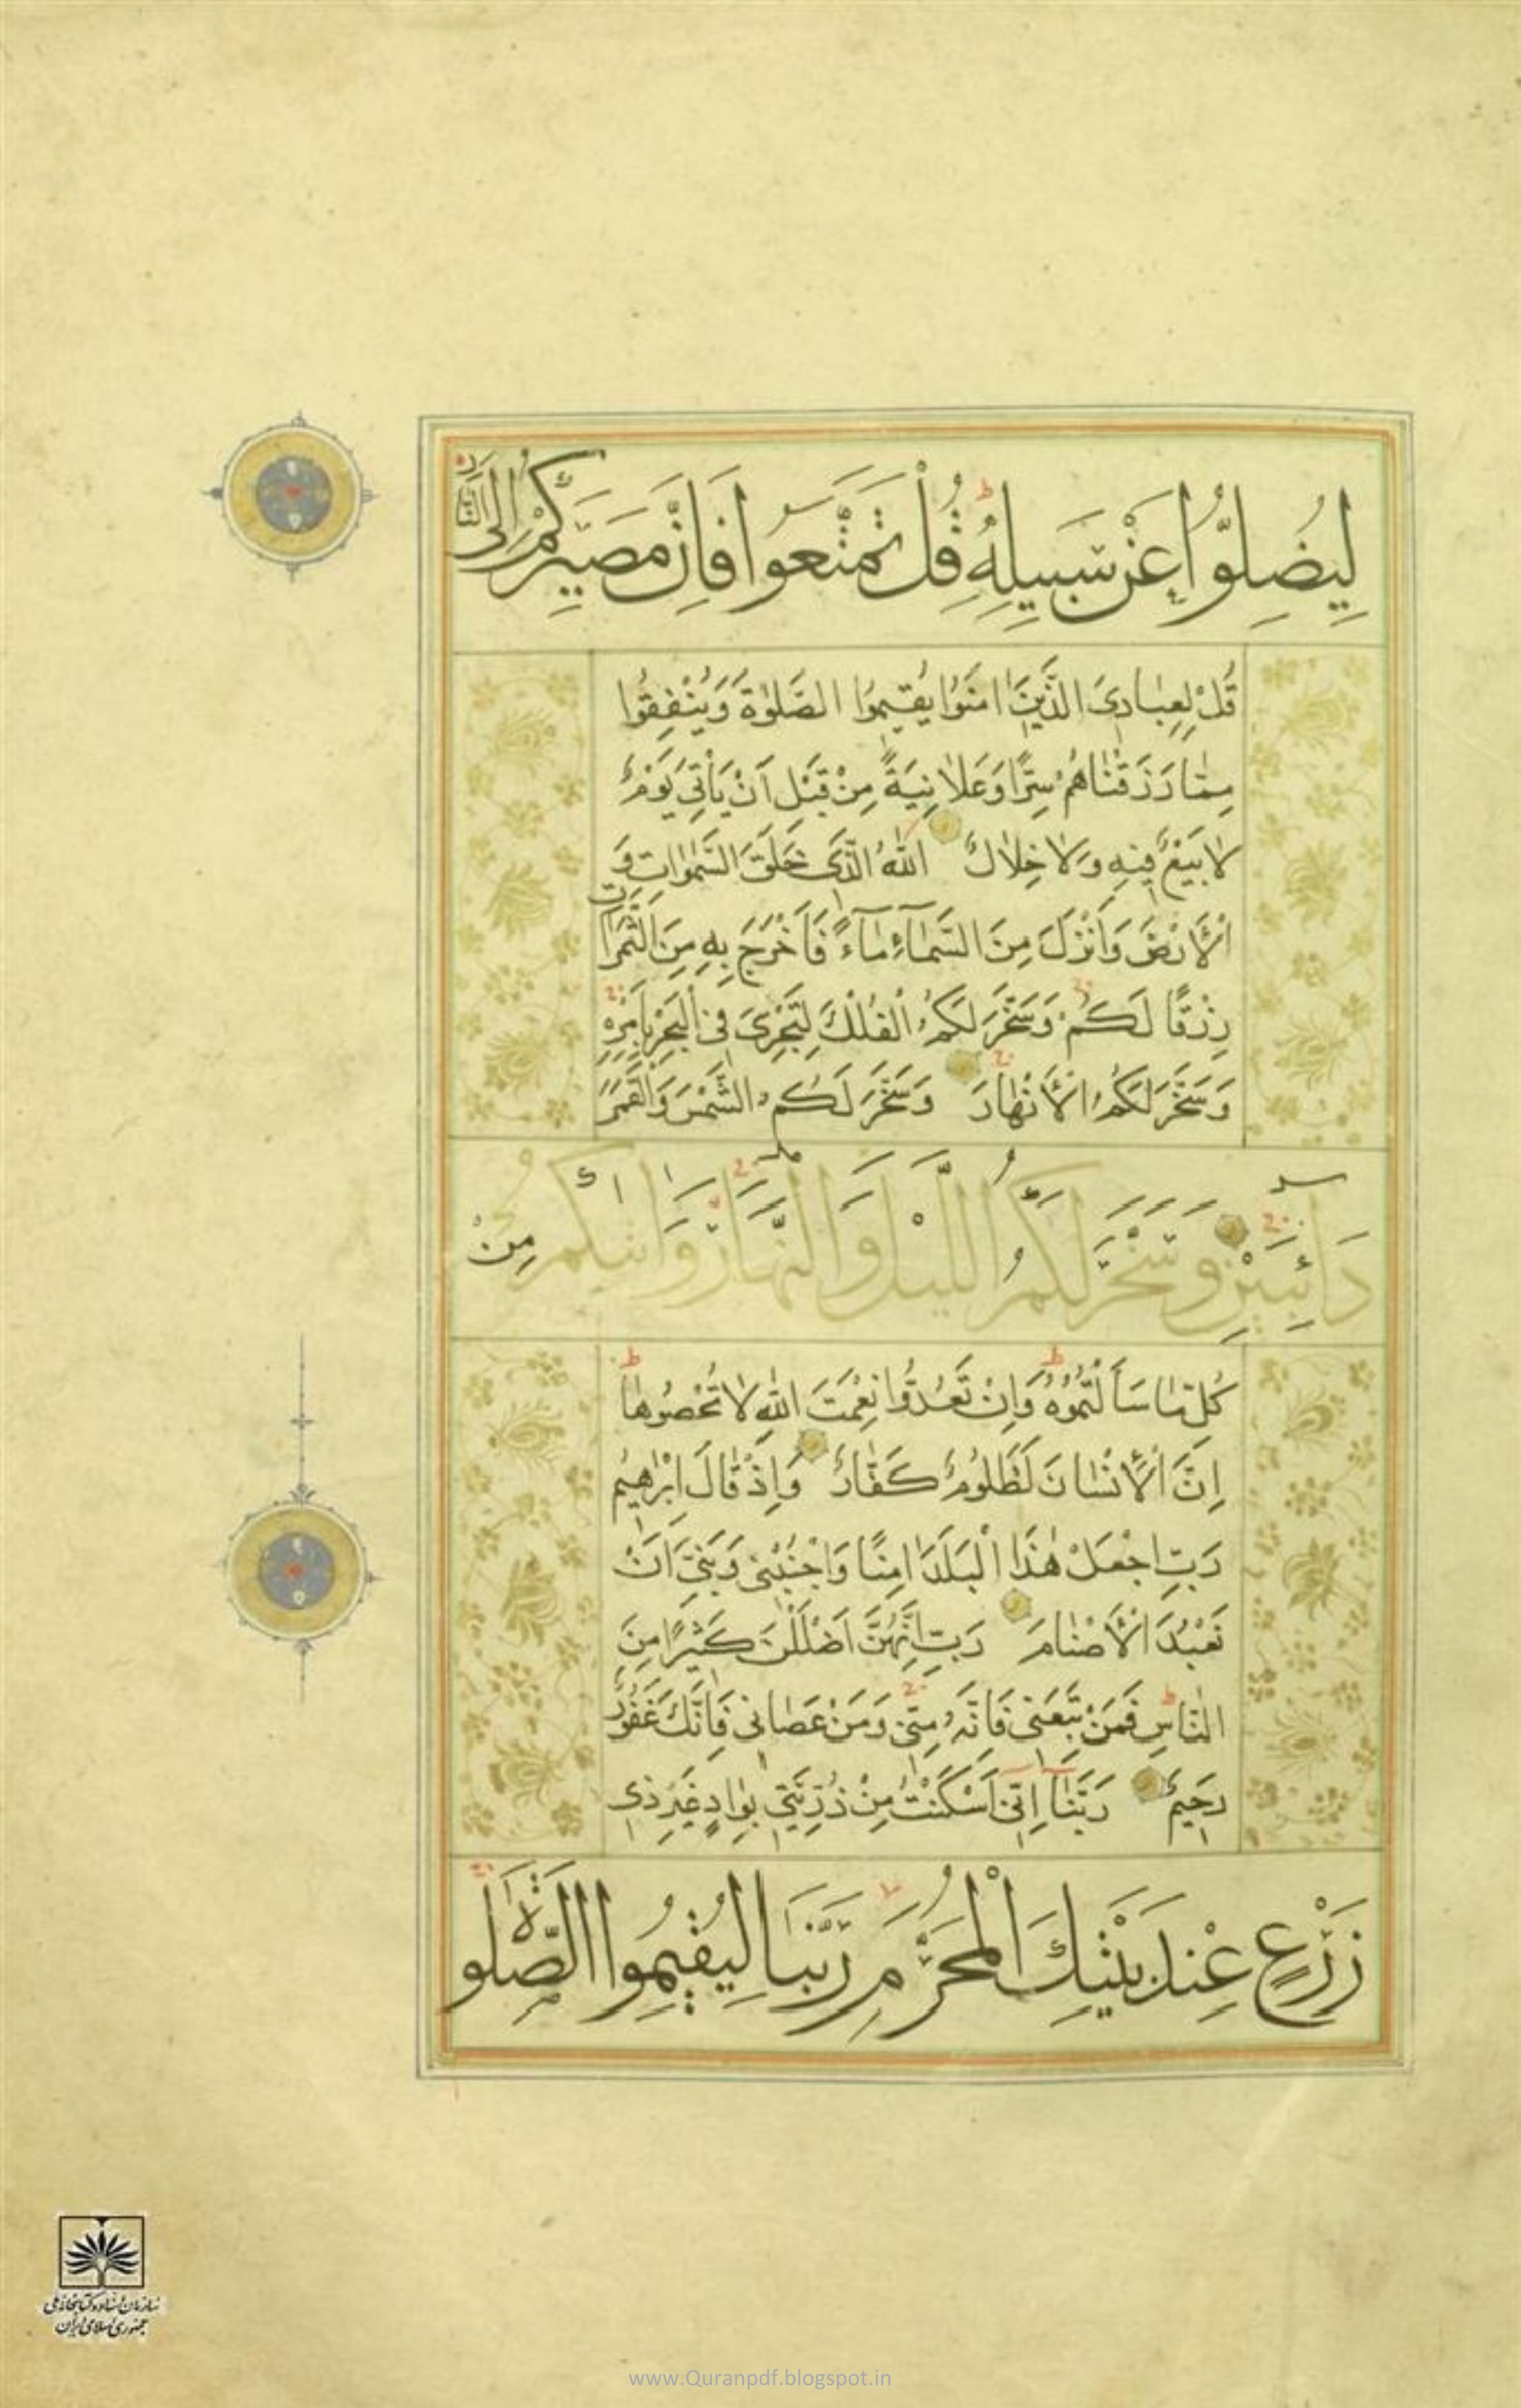 لِيُضِلُّوا عَنْ سَبِيلِهِ قُلْ تَمَتَّعُوا فَاِنَّ مَصِيرَكُمْ اِلَى النَّارِ
قُلْ لِعِبَادِيَ الَّذِينَ اٰمَنُوا يُقِيمُوا الصَّلٰوةَ وَيُنْفِقُوا
مِمَّا رَزَقْنَاهُمْ سِرًّا وَعَلَانِيَةً مِنْ قَبْلِ اَنْ يَأْتِيَ يَوْمٌ
لَا بَيْعٌ فِيهِ وَلَا خِلَالٌ اللّٰهُ الَّذِي خَلَقَ السَّمٰوَاتِ وَ
الْأَرْضَ وَاَنْزَلَ مِنَ السَّمَاۤءِ مَاۤءً فَاَخْرَجَ بِهِ مِنَ الثَّمَرَاتِ
رِزْقًا لَكُمْ وَسَخَّرَ لَكُمُ الْفُلْكَ لِتَجْرِيَ فِي الْبَحْرِ بِاَمْرِهِ
وَسَخَّرَ لَكُمُ الْأَنْهَارَ وَسَخَّرَ لَكُمُ الشَّمْسَ وَالْقَمَرَ
دَاۤئِبَيْنِ وَسَخَّرَ لَكُمُ اللَّيْلَ وَالنَّهَارَ وَاٰتٰىكُمْ مِنْ
كُلِّ مَا سَاَلْتُمُوهُ وَاِنْ تَعُدُّوا نِعْمَتَ اللّٰهِ لَا تُحْصُوهَا
اِنَّ الْأِنْسَانَ لَظَلُومٌ كَفَّارٌ وَاِذْ قَالَ اِبْرٰهِيمُ
رَبِّ اجْعَلْ هٰذَا الْبَلَدَ اٰمِنًا وَاجْنُبْنِي وَبَنِيَّ اَنْ
نَعْبُدَ الْأَصْنَامَ رَبِّ اِنَّهُنَّ اَضْلَلْنَ كَثِيرًا مِنَ
النَّاسِ فَمَنْ تَبِعَنِي فَاِنَّهُ مِنِّي وَمَنْ عَصَانِي فَاِنَّكَ غَفُورٌ
رَحِيمٌ رَبَّنَا اِنِّي اَسْكَنْتُ مِنْ ذُرِّيَّتِي بِوَادٍ غَيْرِ ذِي
زَرْعٍ عِنْدَ بَيْتِكَ الْمُحَرَّمِ رَبَّنَا لِيُقِيمُوا الصَّلٰوةَ
سازمان اسناد و کتابخانه ملی
جمهوری اسلامی ایران
www.Quranpdf.blogspot.in